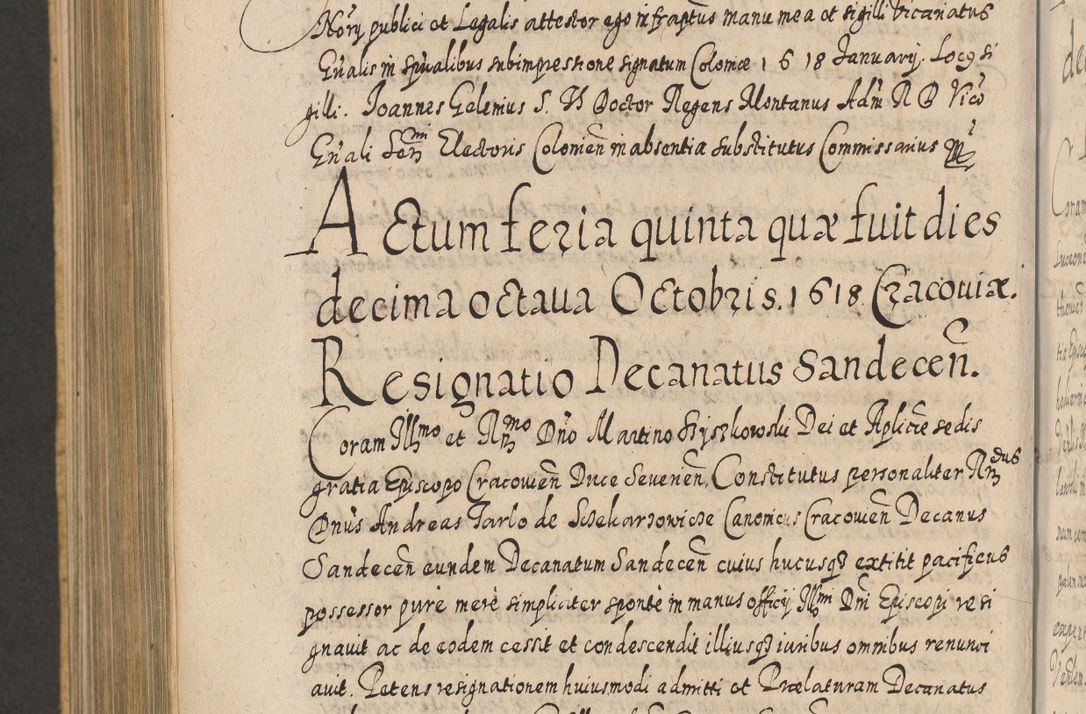 Nory publici et Legalis attestor ego infraptus manu mea et sigilli Vicariatus
Gnalis in Spualibus subimpressione signatum Coloniæ 1618 Januarij. Locq si
gilli. Joannes Gelenius S. Doctor Regens Montanus Adm R D Vico
Gnali Sermi Electoris Colonien in absentia substitutus Commissarius
Actum feria quinta quæ fuit dies
decima octaua Octobris. 1618 Cracouiæ.
Resignatio Decanatus Sandecen.
Coram Illmo et Rmo Dno Martino Szyszkowski Dei et Aplicæ sedis
gratia Episcopo Cracouien Duce Seuerien, Constitutus personaliter Rndus
Dnus Andreas Tarlo de Canonicus Cracouien Decanus
Sandecen eundem Decanatum Sandecen cuius hucusq extitit pacificus
possessor purè merè simpliciter spontè in manus officij Illmi Dni Episcopi resi
gnauit ac de eodem cessit et condescendit illiusq iuribus omnibus renunci
auit. Petens resignationem huiusmodi admitti et Prælaturam Decanatus